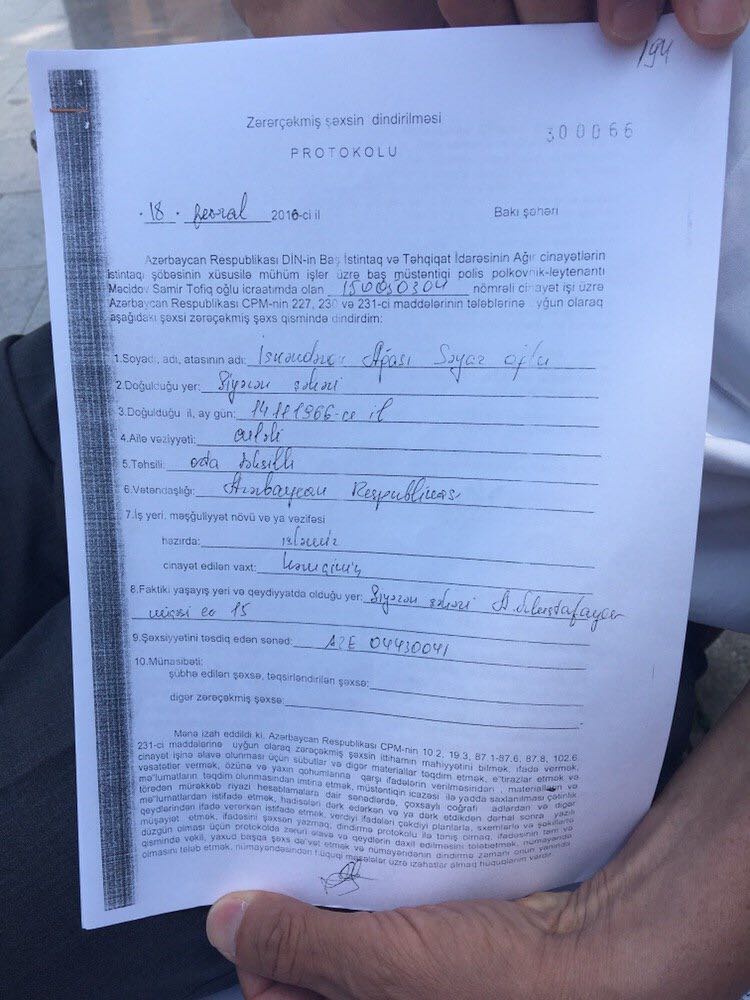 194
Zərərçəkmiş şəxsin dindirilməsi
300066
PROTOKOLU
18. fevral 2016-ci il Bakı şəhəri
Azərbaycan Respublikası DİN-in Baş İstintaq və Təhqiqat İdarəsinin Ağır cinayətlərin
istintaqı şöbəsinin xüsusilə mühüm işlər üzrə baş müstəntiqi polis polkovnik-leytenantı
Məcidov Samir Tofiq oğlu icraatımda olan 150050304 nömrəli cinayət işi üzrə
Azərbaycan Respublikası CPM-nin 227, 230 və 231-ci maddələrinin tələblərinə uyğun olaraq
aşağıdakı şəxsi zərəçəkmiş şəxs qismində dindirdim:
1.Soyadı, adı, atasının adı: İsgəndərov Ağası Səyar oğlu
2.Doğulduğu yer: Siyəzən şəhəri
3.Doğulduğu il, ay gün: 14.11.1966-cı il
4.Ailə vəziyyəti: ailəli
5.Təhsili: orta təhsilli
6.Vətəndaşlığı: Azərbaycan Respublikası
7.İş yeri, məşğuliyyət növü və ya vəzifəsi
hazırda: işləmir
cinayət edilən vaxt: həmçinin
8.Faktiki yaşayış yeri və qeydiyyatda olduğu yer: Siyəzən şəhəri A.Mustafayev
küçəsi ev 15
9.Şəxsiyyətini təsdiq edən sənəd: AZE 04430041
10.Münasibəti:
şübhə edilən şəxsə, təqsirləndirilən şəxsə:
digər zərəçəkmiş şəxsə:
Mənə izah edildi ki, Azərbaycan Respublikası CPM-nin 10.2, 19.3, 87.1-87.6, 87.8, 102.6
231-ci maddələrinə uyğun olaraq zərəçəkmiş şəxsin ittihamın mahiyyətini bilmək, ifadə vermək,
cinayət işinə əlavə olunması üçün sübutlar və digər materiallar təqdim etmək, e'tirazlar etmək və
vəsatətlər vermək, özünə və yaxın qohumlarına qarşı ifadələrin verilməsindən, materialların və
mə'lumatların təqdim olunmasından imtina etmək, müstəntiqin icazəsi ilə yadda saxlanılması çətinlik
törədən mürəkkəb riyazi hesablamalara dair sənədlərdə, çoxsaylı coğrafi adlardan və digər
mə'lumatlardan istifadə etmək, hadisələri dərk edərkən və ya dərk etdikdən dərhal sonra yazılı
qeydlərindən ifadə verərkən istifadə etmək, verdiyi ifadələri çəkdiyi planlarla, sxemlərlə və şəkillərlə
müşayiət etmək, ifadəsini şəxsən yazmaq, dindirmə protokolu ilə tanış olmaq, ifadəsinin tam və
düzgün olması üçün protokolda zəruri əlavə və qeydlərin daxil edilməsini tələbetmək, nümayəndə
qismində vəkil, yaxud başqa şəxs də'vət etmək və nümayəndənin dindirmə zamanı onun yanında
olmasını tələb etmək, nümayəndəsindən hüquqi məsələlər üzrə izahatlar almaq hüquqlarım vardır.